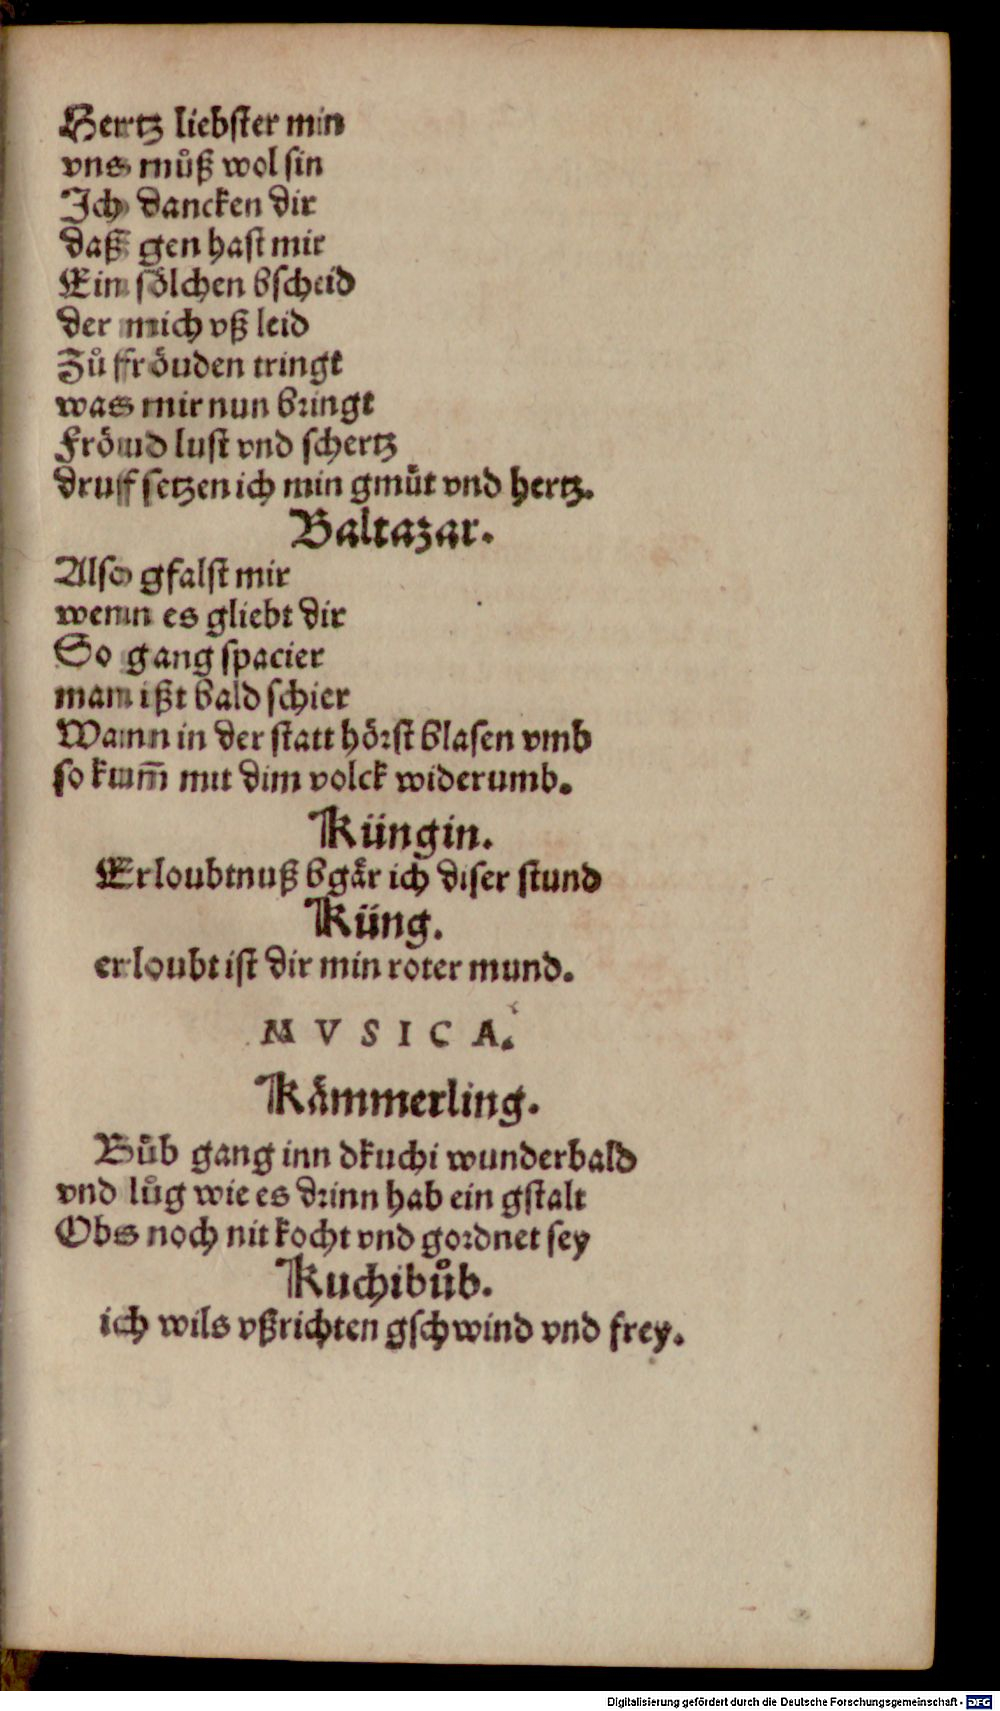 Hertz liebster min
vns můß wol sin
Ich dancken dir
daß gen hast mir
Ein sölchen bscheid
der mich vß leid
Zů fröuden tringt
was mir nun bringt
Fröud lust vnd schertz
druff setzen ich min gmüt vnd hertz.
Baltazar.
Also gfalst mir
wenn es gliebt dir
So gang spacier
man ißt bald schier
Wann in der statt hörst blasen vmb
so kum̃ mit dim volck widerumb.
Küngin.
Erloubtnuß bgär ich diser stund
Küng.
erloubt ist dir min roter mund.
MVSICA.
Kämmerling.
Bůb gang inn dkuchi wunderbald
vnd lůg wie es drinn hab ein gstalt
Obs noch nit kocht vnd gordnet sey
Kuchibůb.
ich wils vßrichten gschwind vnd frey.
Digitalisierung gefördert durch die Deutsche Forschungsgemeinschaft - DFG